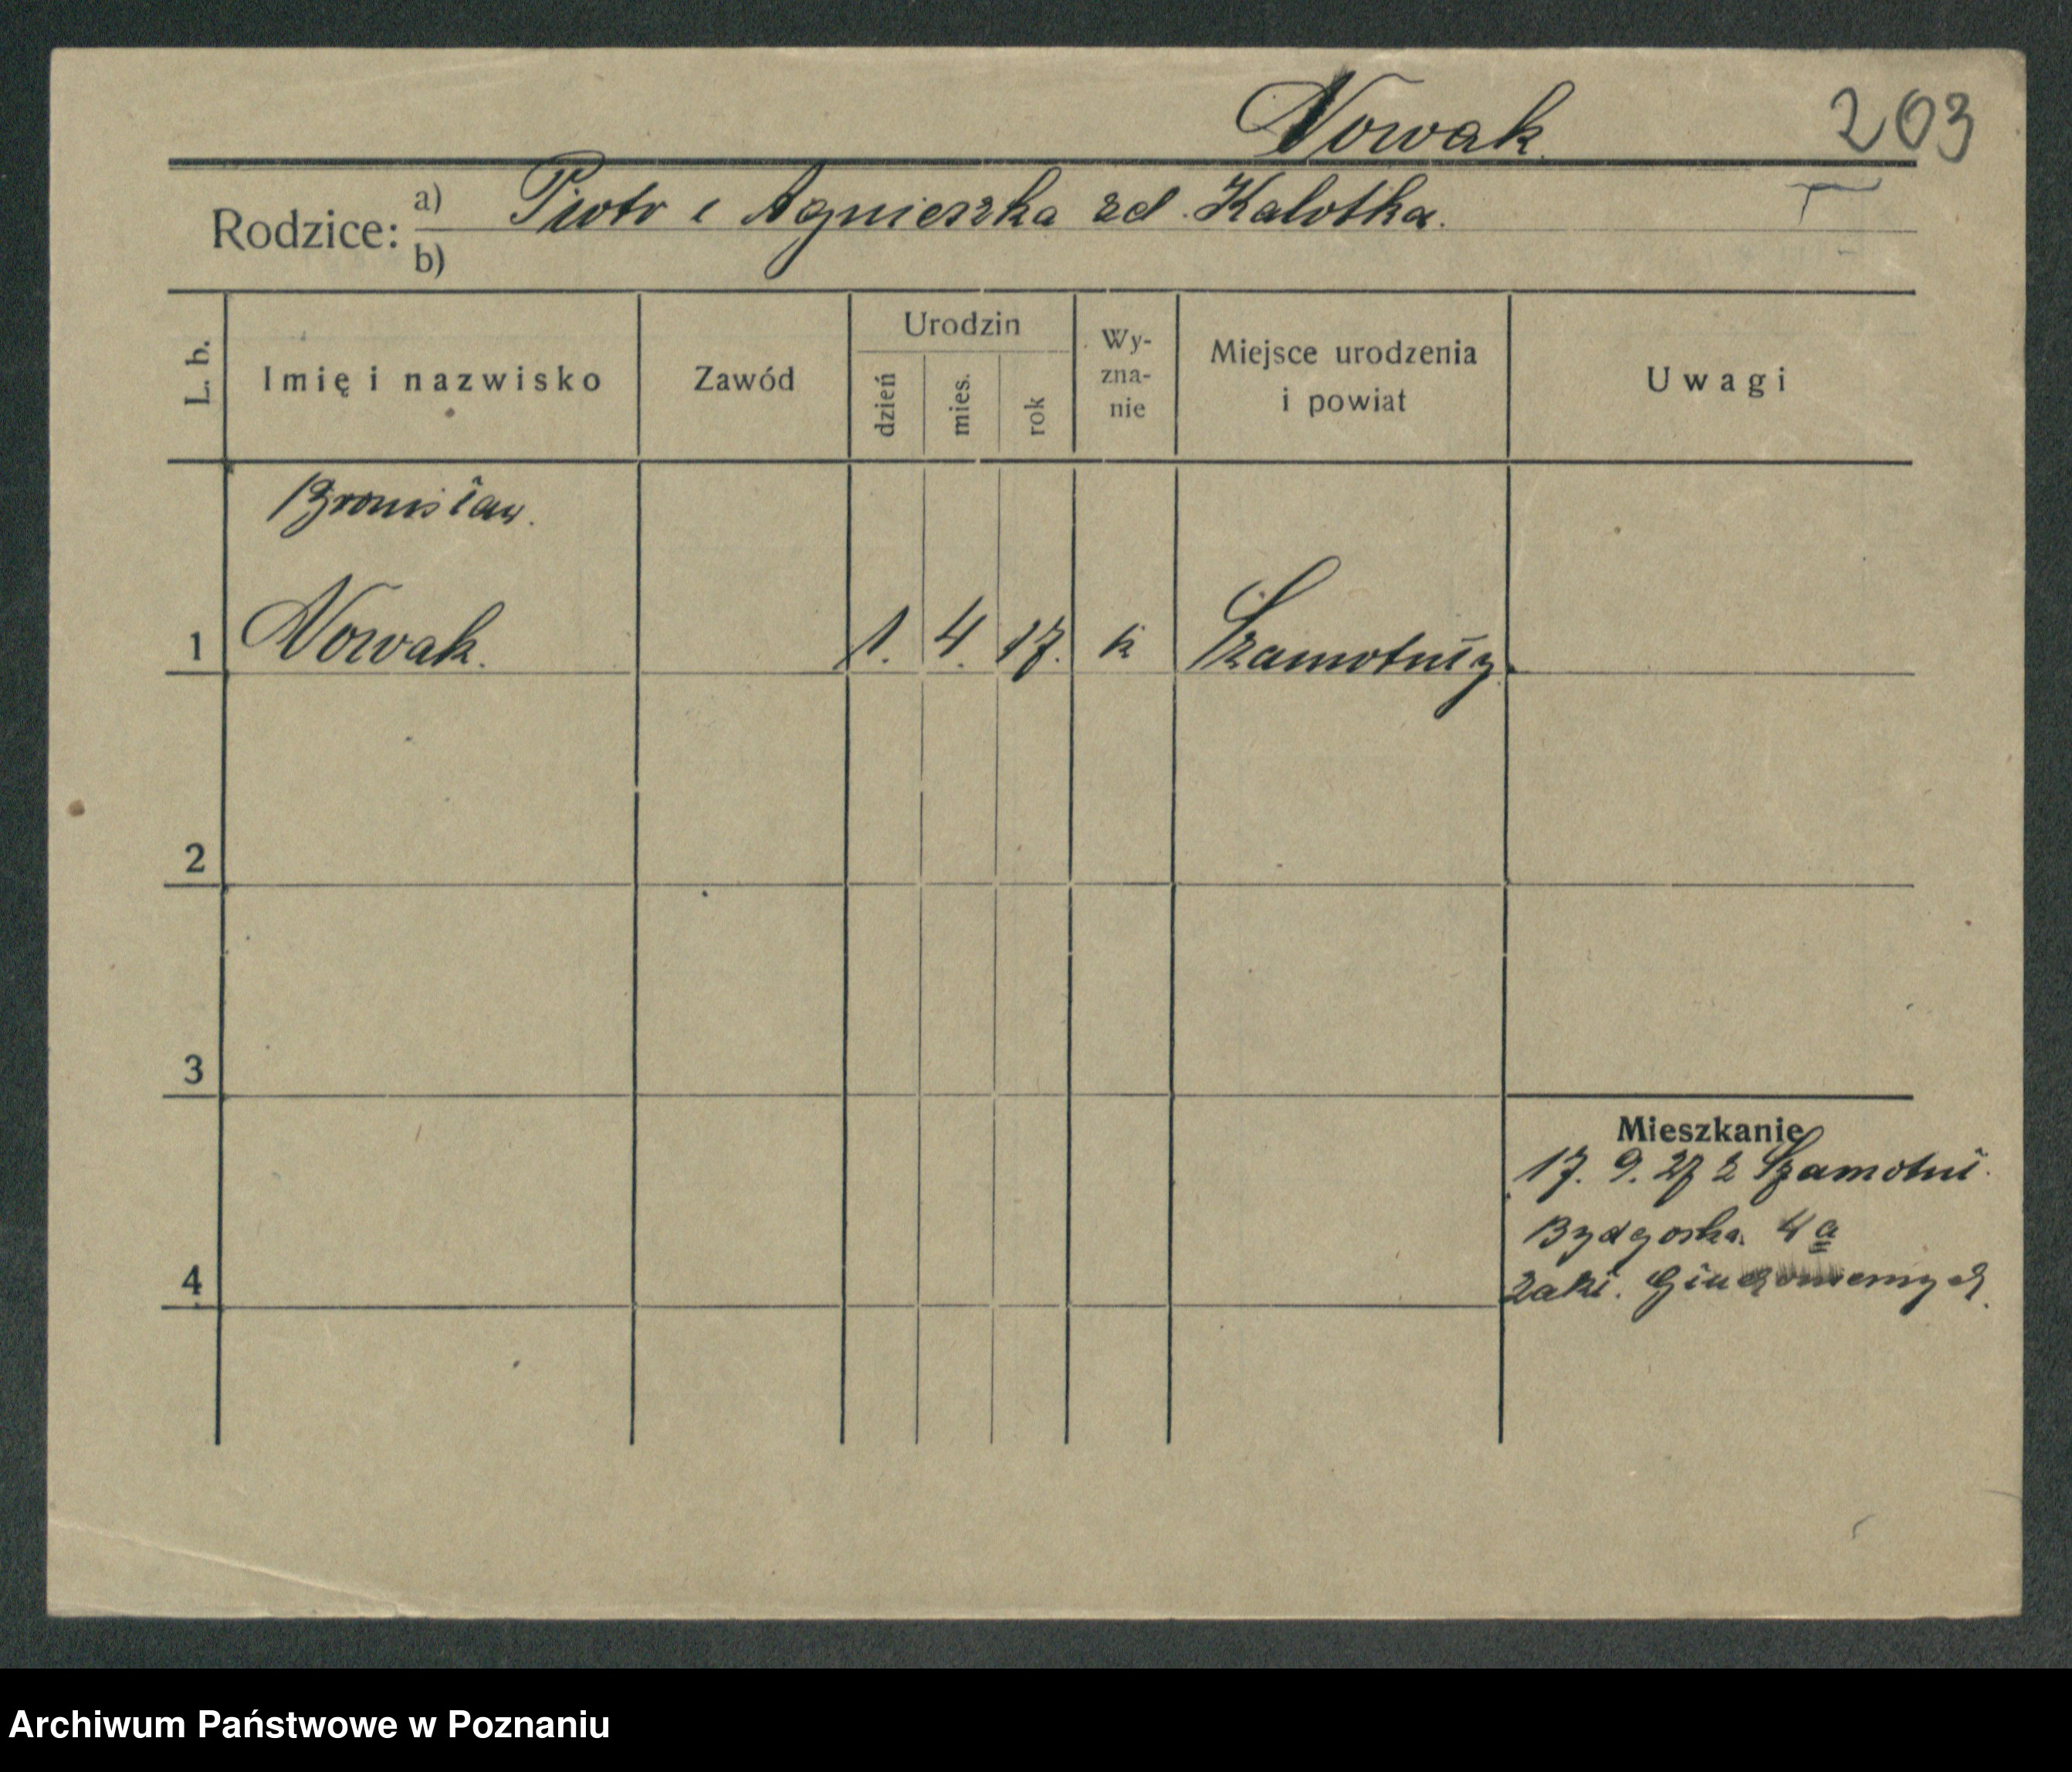 Nowak
203
Rodzice: a) Piotr i Agnieszka zd. Kalotka.
b)
L. b.
Imię i nazwisko
Zawód
Urodzin
dzień
mies.
rok
Wy-
zna-
nie
Miejsce urodzenia
i powiat
Uwagi
Bronisław.
1 Nowak. 1. 4. 17. k Szamotuły.
2
3
Mieszkanie
17. 9. 27 z Szamotuł.
Bydgoska 4a
4 Zakł. Głuchoniemych.
Archiwum Państwowe w Poznaniu